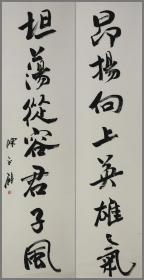 昂揚向上英雄之氣
坦蕩從容君子風